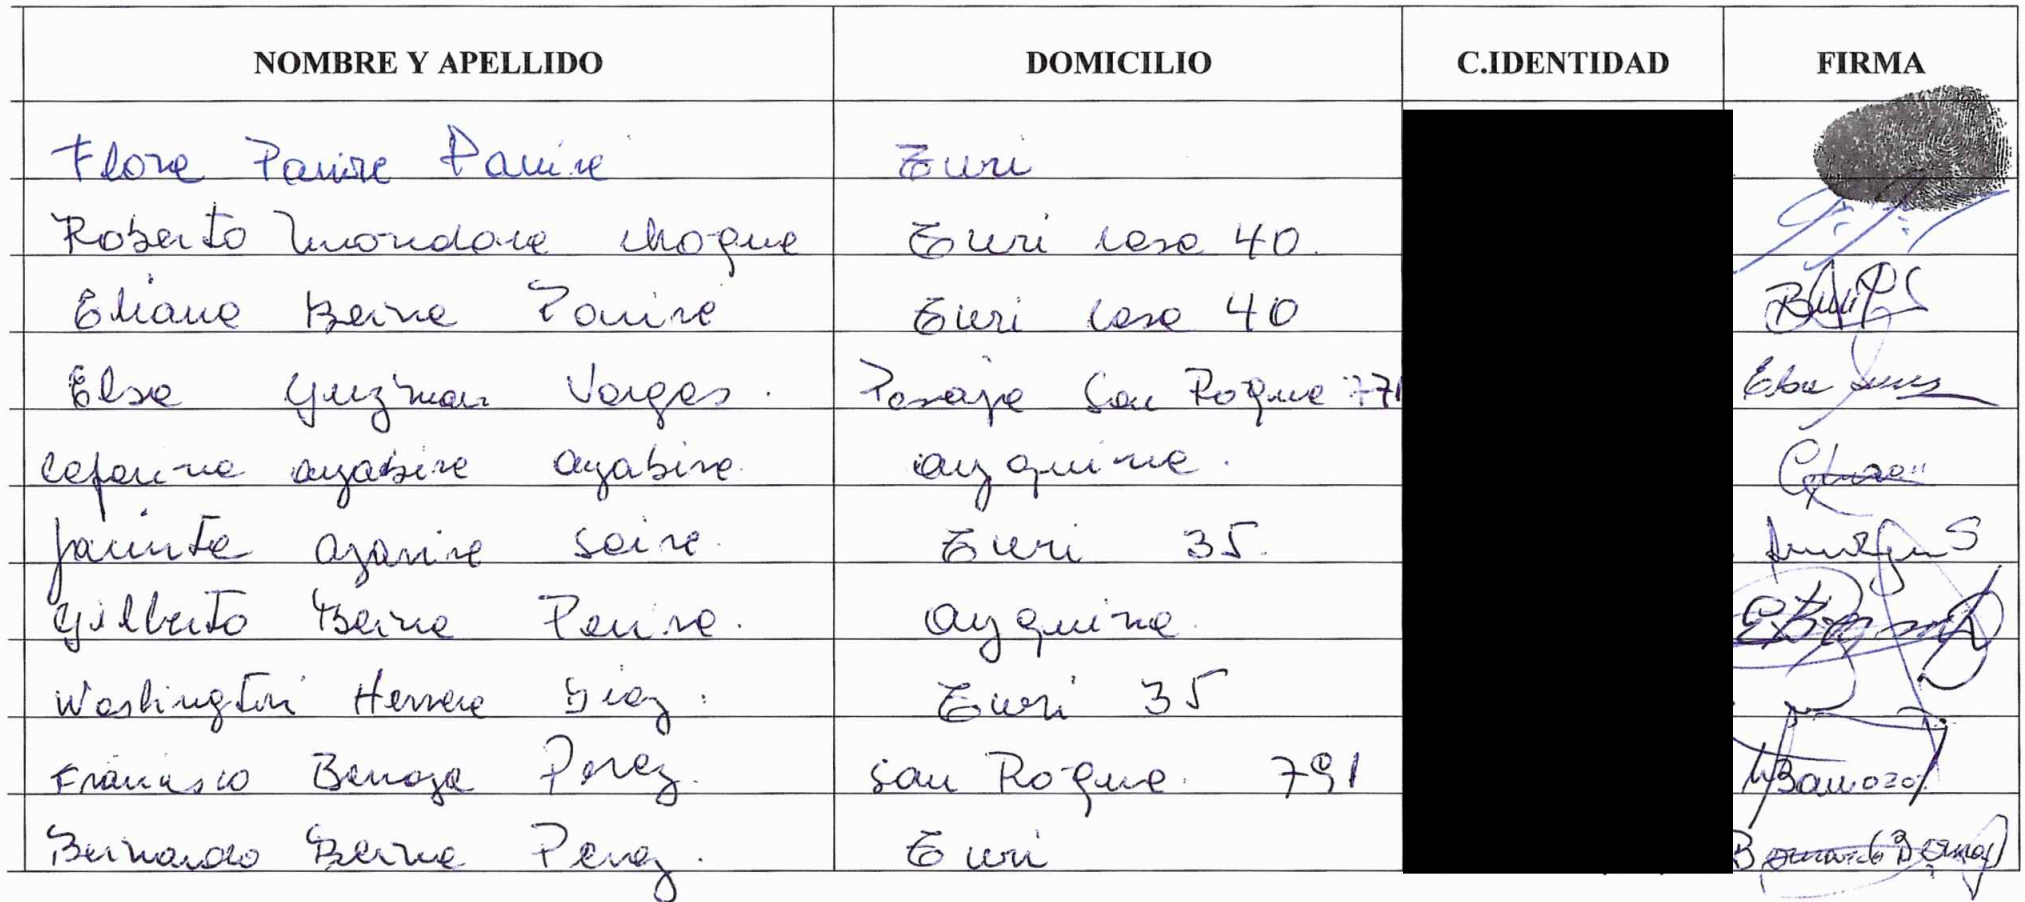 NOMBRE Y APELLIDO DOMICILIO C.IDENTIDAD FIRMA
Flora Panire Panire Turi
Roberto Mondaca choque Turi casa 40.
Eliana Berna Panire Turi casa 40
Elsa Guzman Vargas. Pasaje San Roque 771 Elsa
Ceferina ayabire ayabire. ayquina.
Jacinta Saire. Turi 35.
Gilberto Berna Panire. ayquina.
Washington Herrera Diaz. Turi 35
Francisco Perez. San Roque. 791
Bernardo Berna Perez. Turi